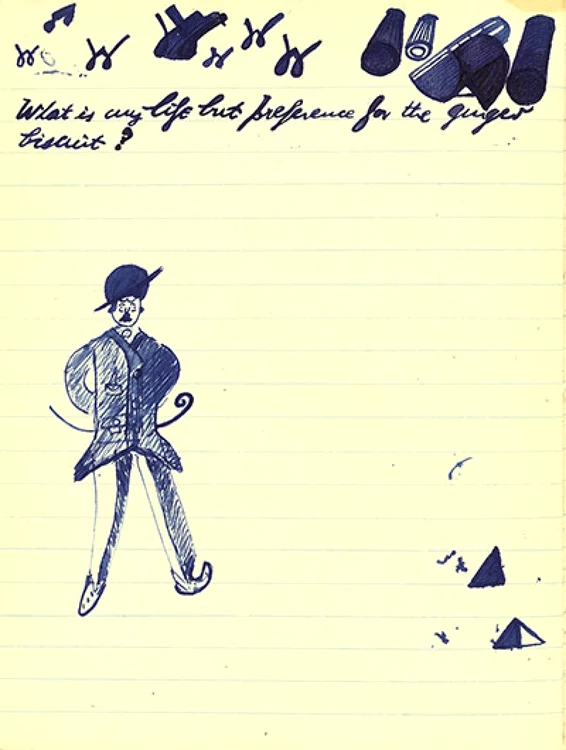 What is my life but preference for the ginger
biscuit ?